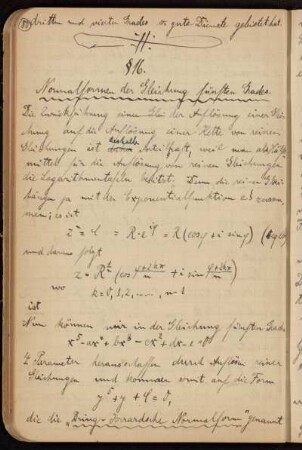 dritten und vierten Grades so gute Dienste geleistet hat.
§ 16.
Normalformen der Gleichung fünften Grades.
Die Zurückführung einer bei der Auflösung einer Glei-
chung auf die Auflösung einer Kette von reinen
Gleichungen ist deshalb, weil man als Hilfs-
mittel für die Auflösung von reinen Gleichungen
die Logarithmentafeln besitzt. Denn die reinen Glei-
chungen ja mit der Exponentialfunktion zusam-
men; es ist
z^n = C = R·e^{iφ} = R(cos φ + i sin φ)
und daraus folgt
z = R^{1/n} (cos (φ+2kπ)/n + i sin (φ+2kπ)/n)
wo
k = 0, 1, 2, ... , n-1
ist
Nun können wir in der Gleichung fünften Grades
x^5 - ax^4 + bx^3 - cx^2 + dx - e = 0
4 Parameter herausschaffen durch Auflösen reiner
Gleichungen und kommen somit auf die Form
y^5 + y + C = 0,
die die „Bring-Jerrardsche Normalform" genannt